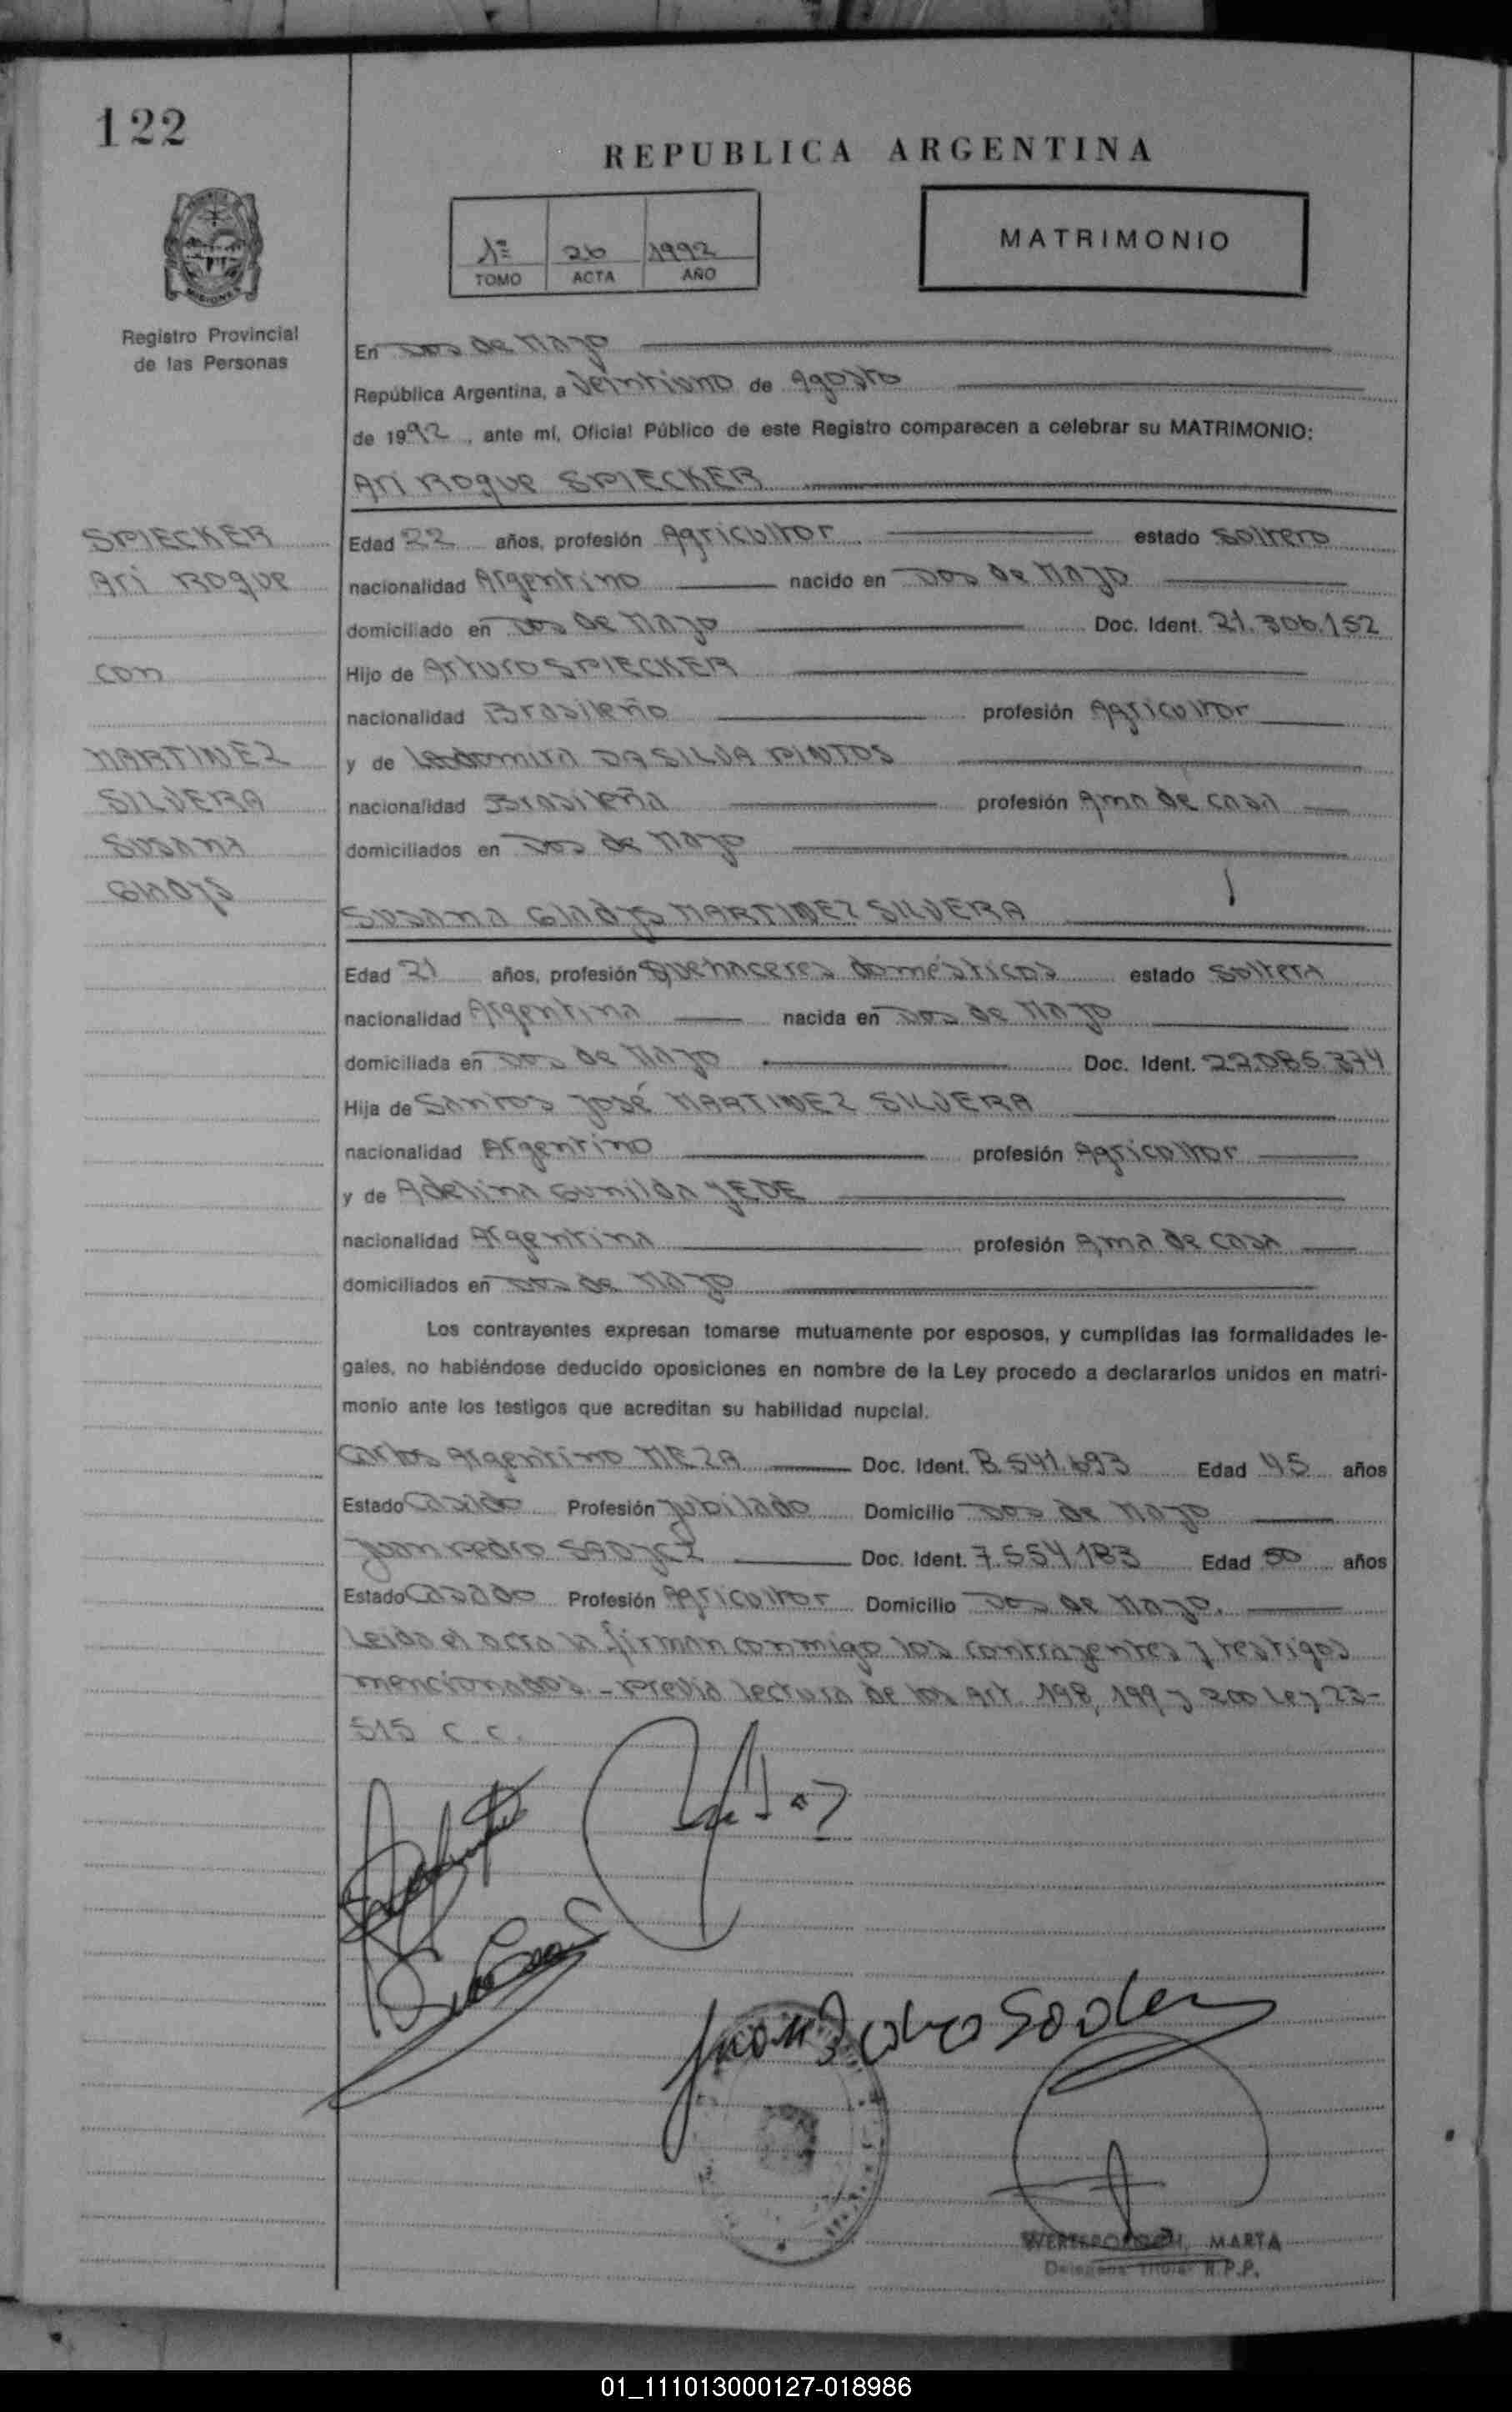 122
REPUBLICA ARGENTINA
MISIONES
Registro Provincial
de las Personas
1º 26 1992
TOMO ACTA AÑO
MATRIMONIO
En Dos de Mayo
República Argentina, a Veintiuno de Agosto
de 1992, ante mí, Oficial Público de este Registro comparecen a celebrar su MATRIMONIO:
Ari Roque SPIECKER
SPIECKER
Ari Roque
con
MARTINEZ
SILVERA
Susana
Gladys
Edad 22 años, profesión Agricultor estado Soltero
nacionalidad Argentino nacido en Dos de Mayo
domiciliado en Dos de Mayo Doc. Ident. 21.306.152
Hijo de Arturo SPIECKER
nacionalidad Brasileño profesión Agricultor
y de DA SILVA PINTOS
nacionalidad Brasileña profesión Ama de casa
domiciliados en Dos de Mayo
Susana Gladys MARTINEZ SILVERA
Edad 21 años, profesión Quehaceres domésticos estado Soltera
nacionalidad Argentina nacida en Dos de Mayo
domiciliada en Dos de Mayo Doc. Ident. 22.085.374
Hija de Santos José MARTINEZ SILVERA
nacionalidad Argentino profesión Agricultor
y de Adelina Gunilda YEDE
nacionalidad Argentina profesión Ama de casa
domiciliados en Dos de Mayo
Los contrayentes expresan tomarse mutuamente por esposos, y cumplidas las formalidades le-
gales, no habiéndose deducido oposiciones en nombre de la Ley procedo a declararlos unidos en matri-
monio ante los testigos que acreditan su habilidad nupcial.
Carlos Argentino MEZA Doc. Ident. 8.541.693 Edad 45 años
Estado Casado Profesión Jubilado Domicilio Dos de Mayo
Juan Pedro Doc. Ident. 7.554.183 Edad 50 años
Estado Casado Profesión Agricultor Domicilio Dos de Mayo.
Leida el acta la firman conmigo los contrayentes y testigos
mencionados - Previa lectura de los Art. 198, 199 y 200 Ley 23-
515 C.C.
Juan Pedro
MARTA
Delegada Titular R.P.P.
01_111013000127-018986